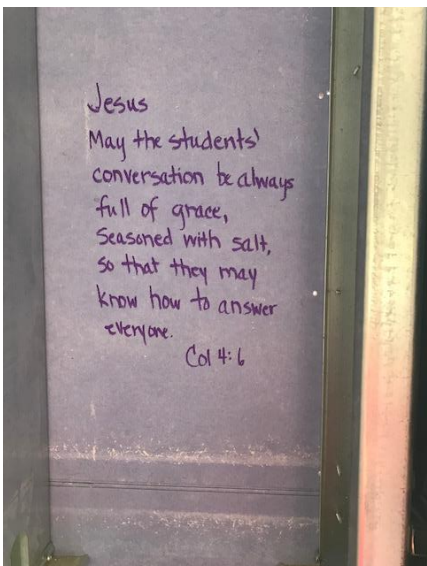 Jesus
May the students'
conversation be always
full of grace,
Seasoned with salt,
so that they may
know how to answer
everyone.
Col 4:6